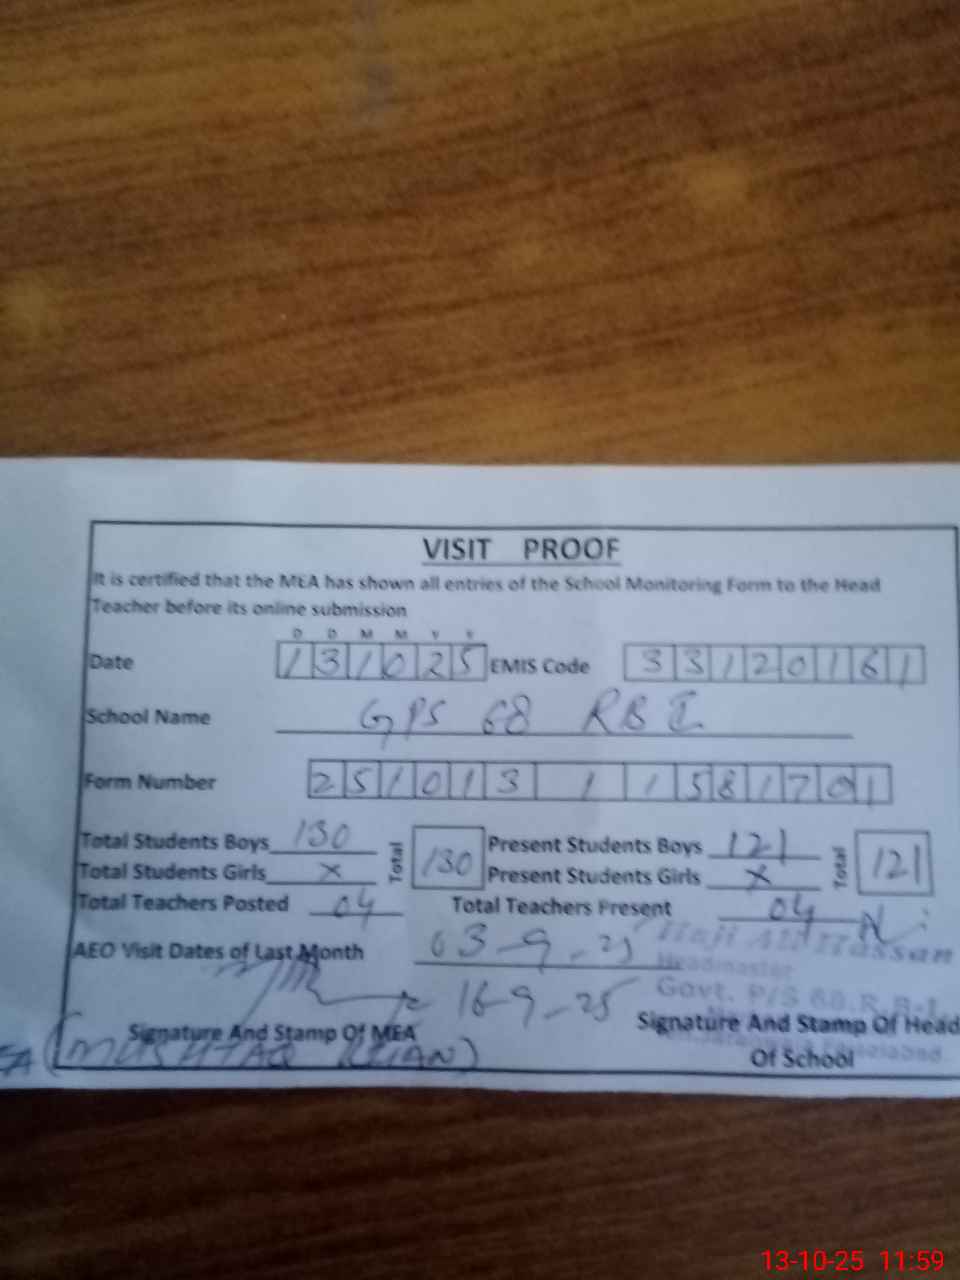 VISIT PROOF
It is certified that the MEA has shown all entries of the School Monitoring Form to the Head
Teacher before its online submission
D D M M Y Y
Date 131025 EMIS Code 33120161
School Name GPS 68 RB I
Form Number 251013 1 1581701
Total Students Boys 130 Total 130 Present Students Boys 121 Total 121
Total Students Girls x Present Students Girls x
Total Teachers Posted 04 Total Teachers Present 04
AEO Visit Dates of Last Month 03-9-25
16-9-25
Haji Ali Hassan
Headmaster
Govt. P/S 68.R.B-I
Signature And Stamp Of MEA Signature And Stamp Of Head
Of School
Faisalabad
(MUSHTAQ KHAN)
13-10-25 11:59